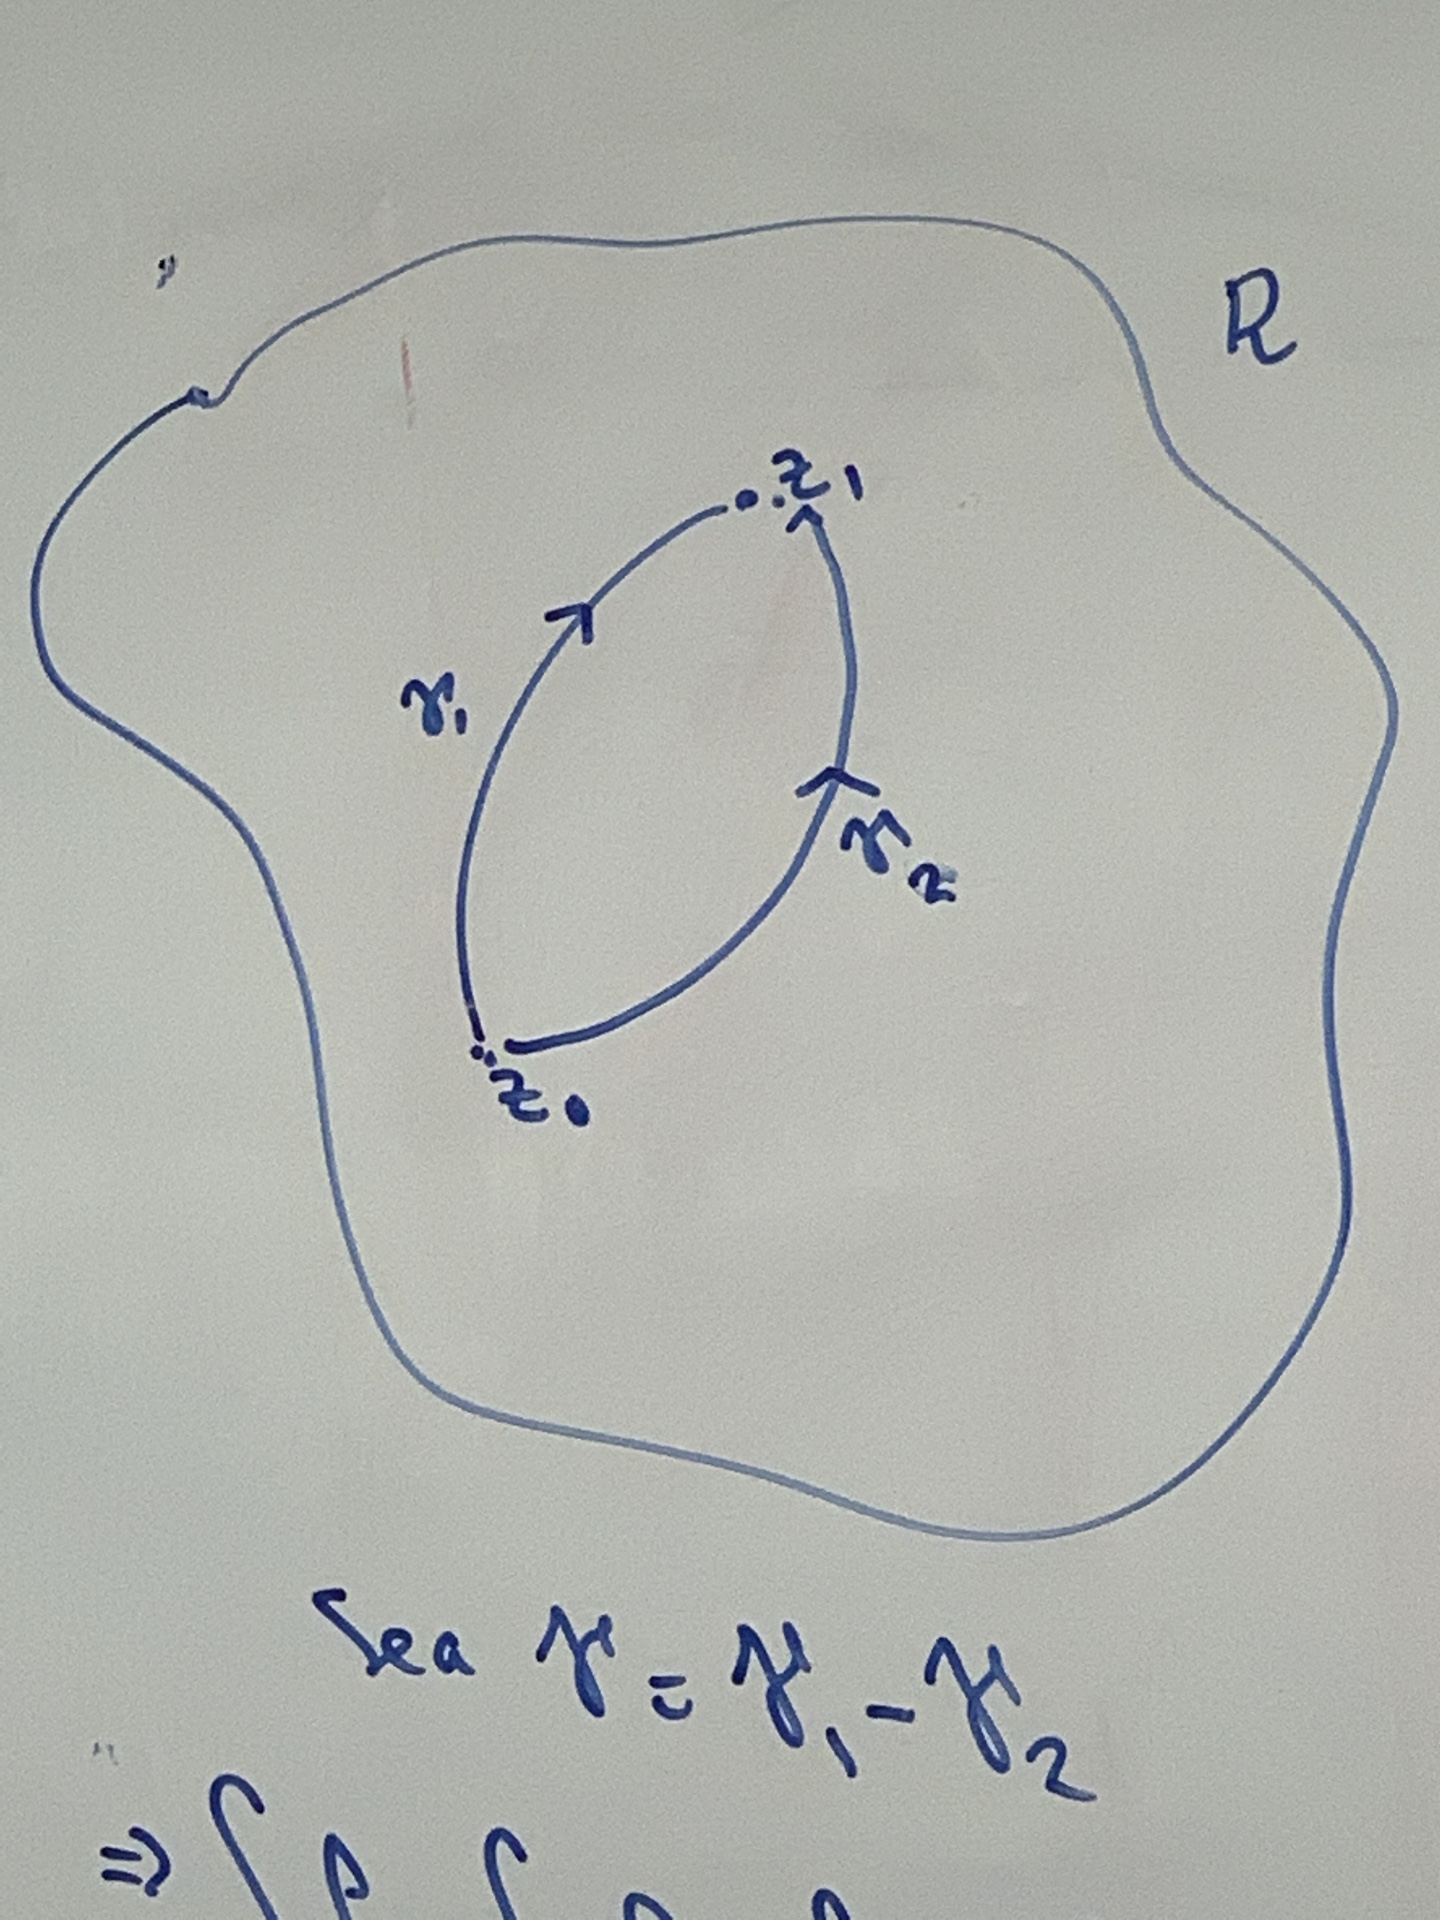 R
z₁
γ₁
γ₂
z₀
Sea γ = γ₁ - γ₂
⇒ ∫ ∫